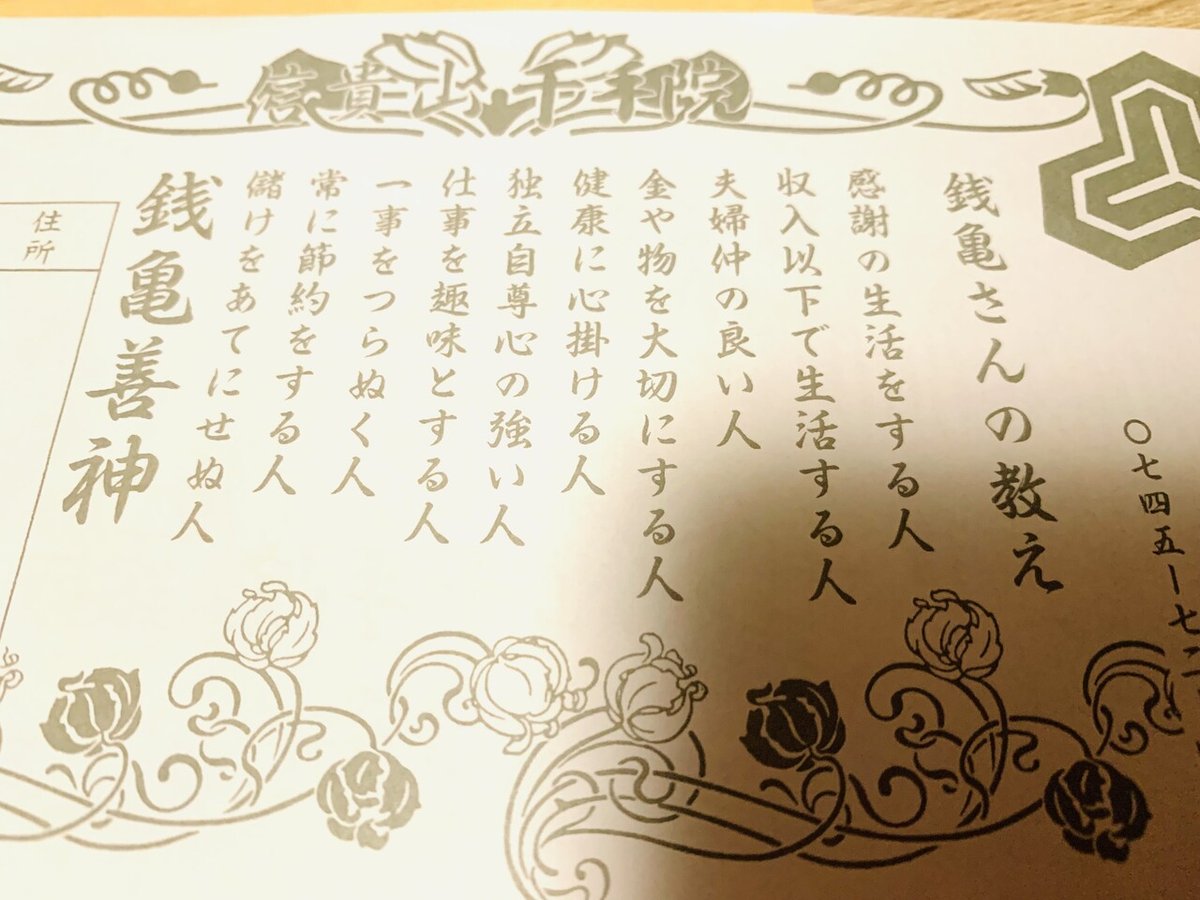 信貴山 千手院
〇七四五ー七二
銭亀さんの教え
感謝の生活をする人
収入以下で生活する人
夫婦仲の良い人
金や物を大切にする人
健康に心掛ける人
独立自尊心の強い人
仕事を趣味とする人
一事をつらぬく人
常に節約をする人
儲けをあてにせぬ人
銭亀善神
住所